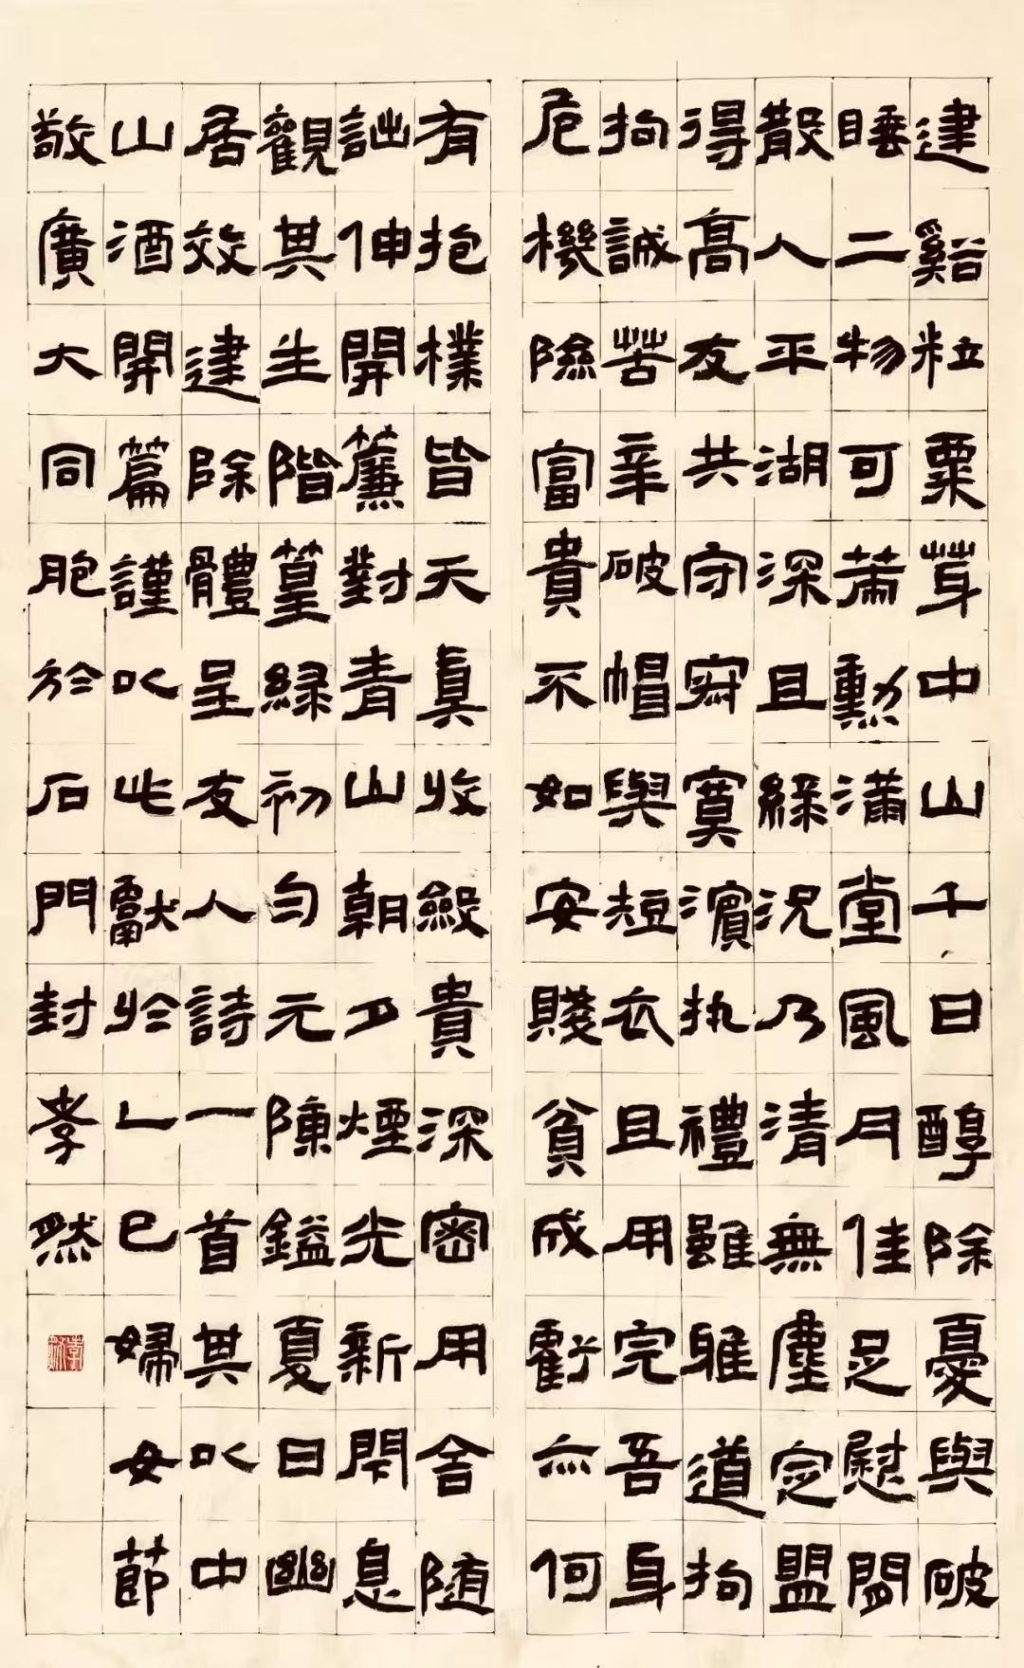 建谿粒粟芽中山千日醇除憂與破
睡二物可策勳滿堂風月佳足慰閑
散人平湖深且綠況乃清無塵定盟
得高友共守寂寞濱执禮雖雅道拘
拘誠苦辛破帽與短衣且用完吾身
危機險富貴不如安賤貧成虧亦何
有抱樸皆天真收斂貴深密用舍随
詘伸開簾對青山朝夕煙光新閑息
觀其生階篁綠初勻元陳鎰夏日幽
居效建除體呈友人詩一首其以中
山酒開篇謹以此獻於乙巳婦女節
敬廣大同胞於石門封孝然